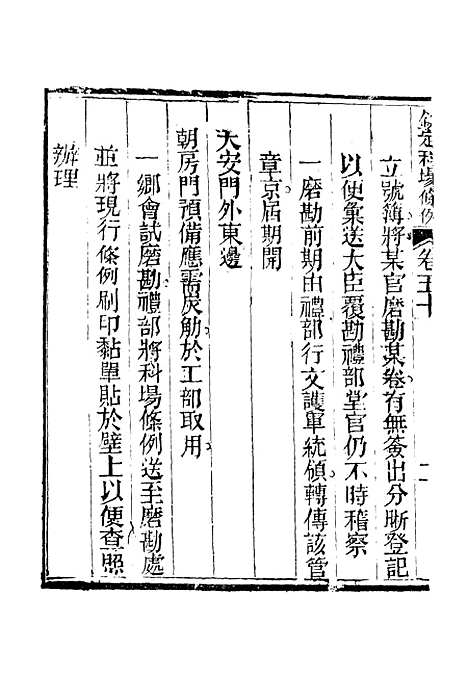 欽定科場條例 卷五十 二
立號簿將某官磨勘某卷有無簽出分晰登記
以便彙送大臣覆勘禮部堂官仍不時稽察
一磨勘前期由禮部行文護軍統領轉傳該管
章京屆期開
天安門外東邊
朝房門預備應需炭觔於工部取用
一鄉會試磨勘禮部將科場條例送至磨勘處
並將現行條例刷印黏單貼於壁上以便查照
辦理